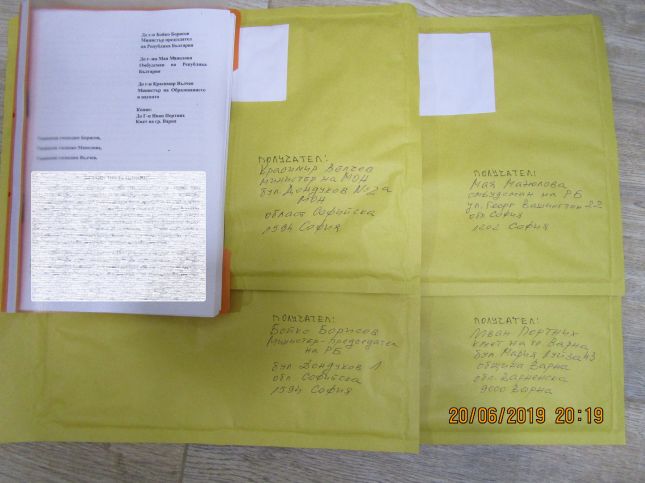 До г-н Бойко Борисов
Министър председател
на Република България
До г-жа Мая Манолова
Омбудсман на Република
България
До г-н Красимир Вълчев
Министър на Образованието
и науката
Копие:
До Г-н Иван Портних
Кмет на гр. Варна
Уважаеми господин Борисов,
Уважаема госпожо Манолова,
Уважаеми господин Вълчев,
ПОЛУЧАТЕЛ:
Красимир Вълчев
министър на МОН
бул. Дондуков № 2а
МОН
област Софийска
1594 София
ПОЛУЧАТЕЛ:
Мая Манолова
омбудсман на РБ
ул. Георг Вашингтон 22
обл. София
1202 София
ПОЛУЧАТЕЛ:
Бойко Борисов
Министър-председател
на РБ
бул. Дондуков 1
обл. Софийска
1594 София
ПОЛУЧАТЕЛ:
Иван Портних
кмет на гр Варна
бул. Мария Луиза 43
община Варна
обл. Варненска
9000 Варна
20/06/2019 20:19